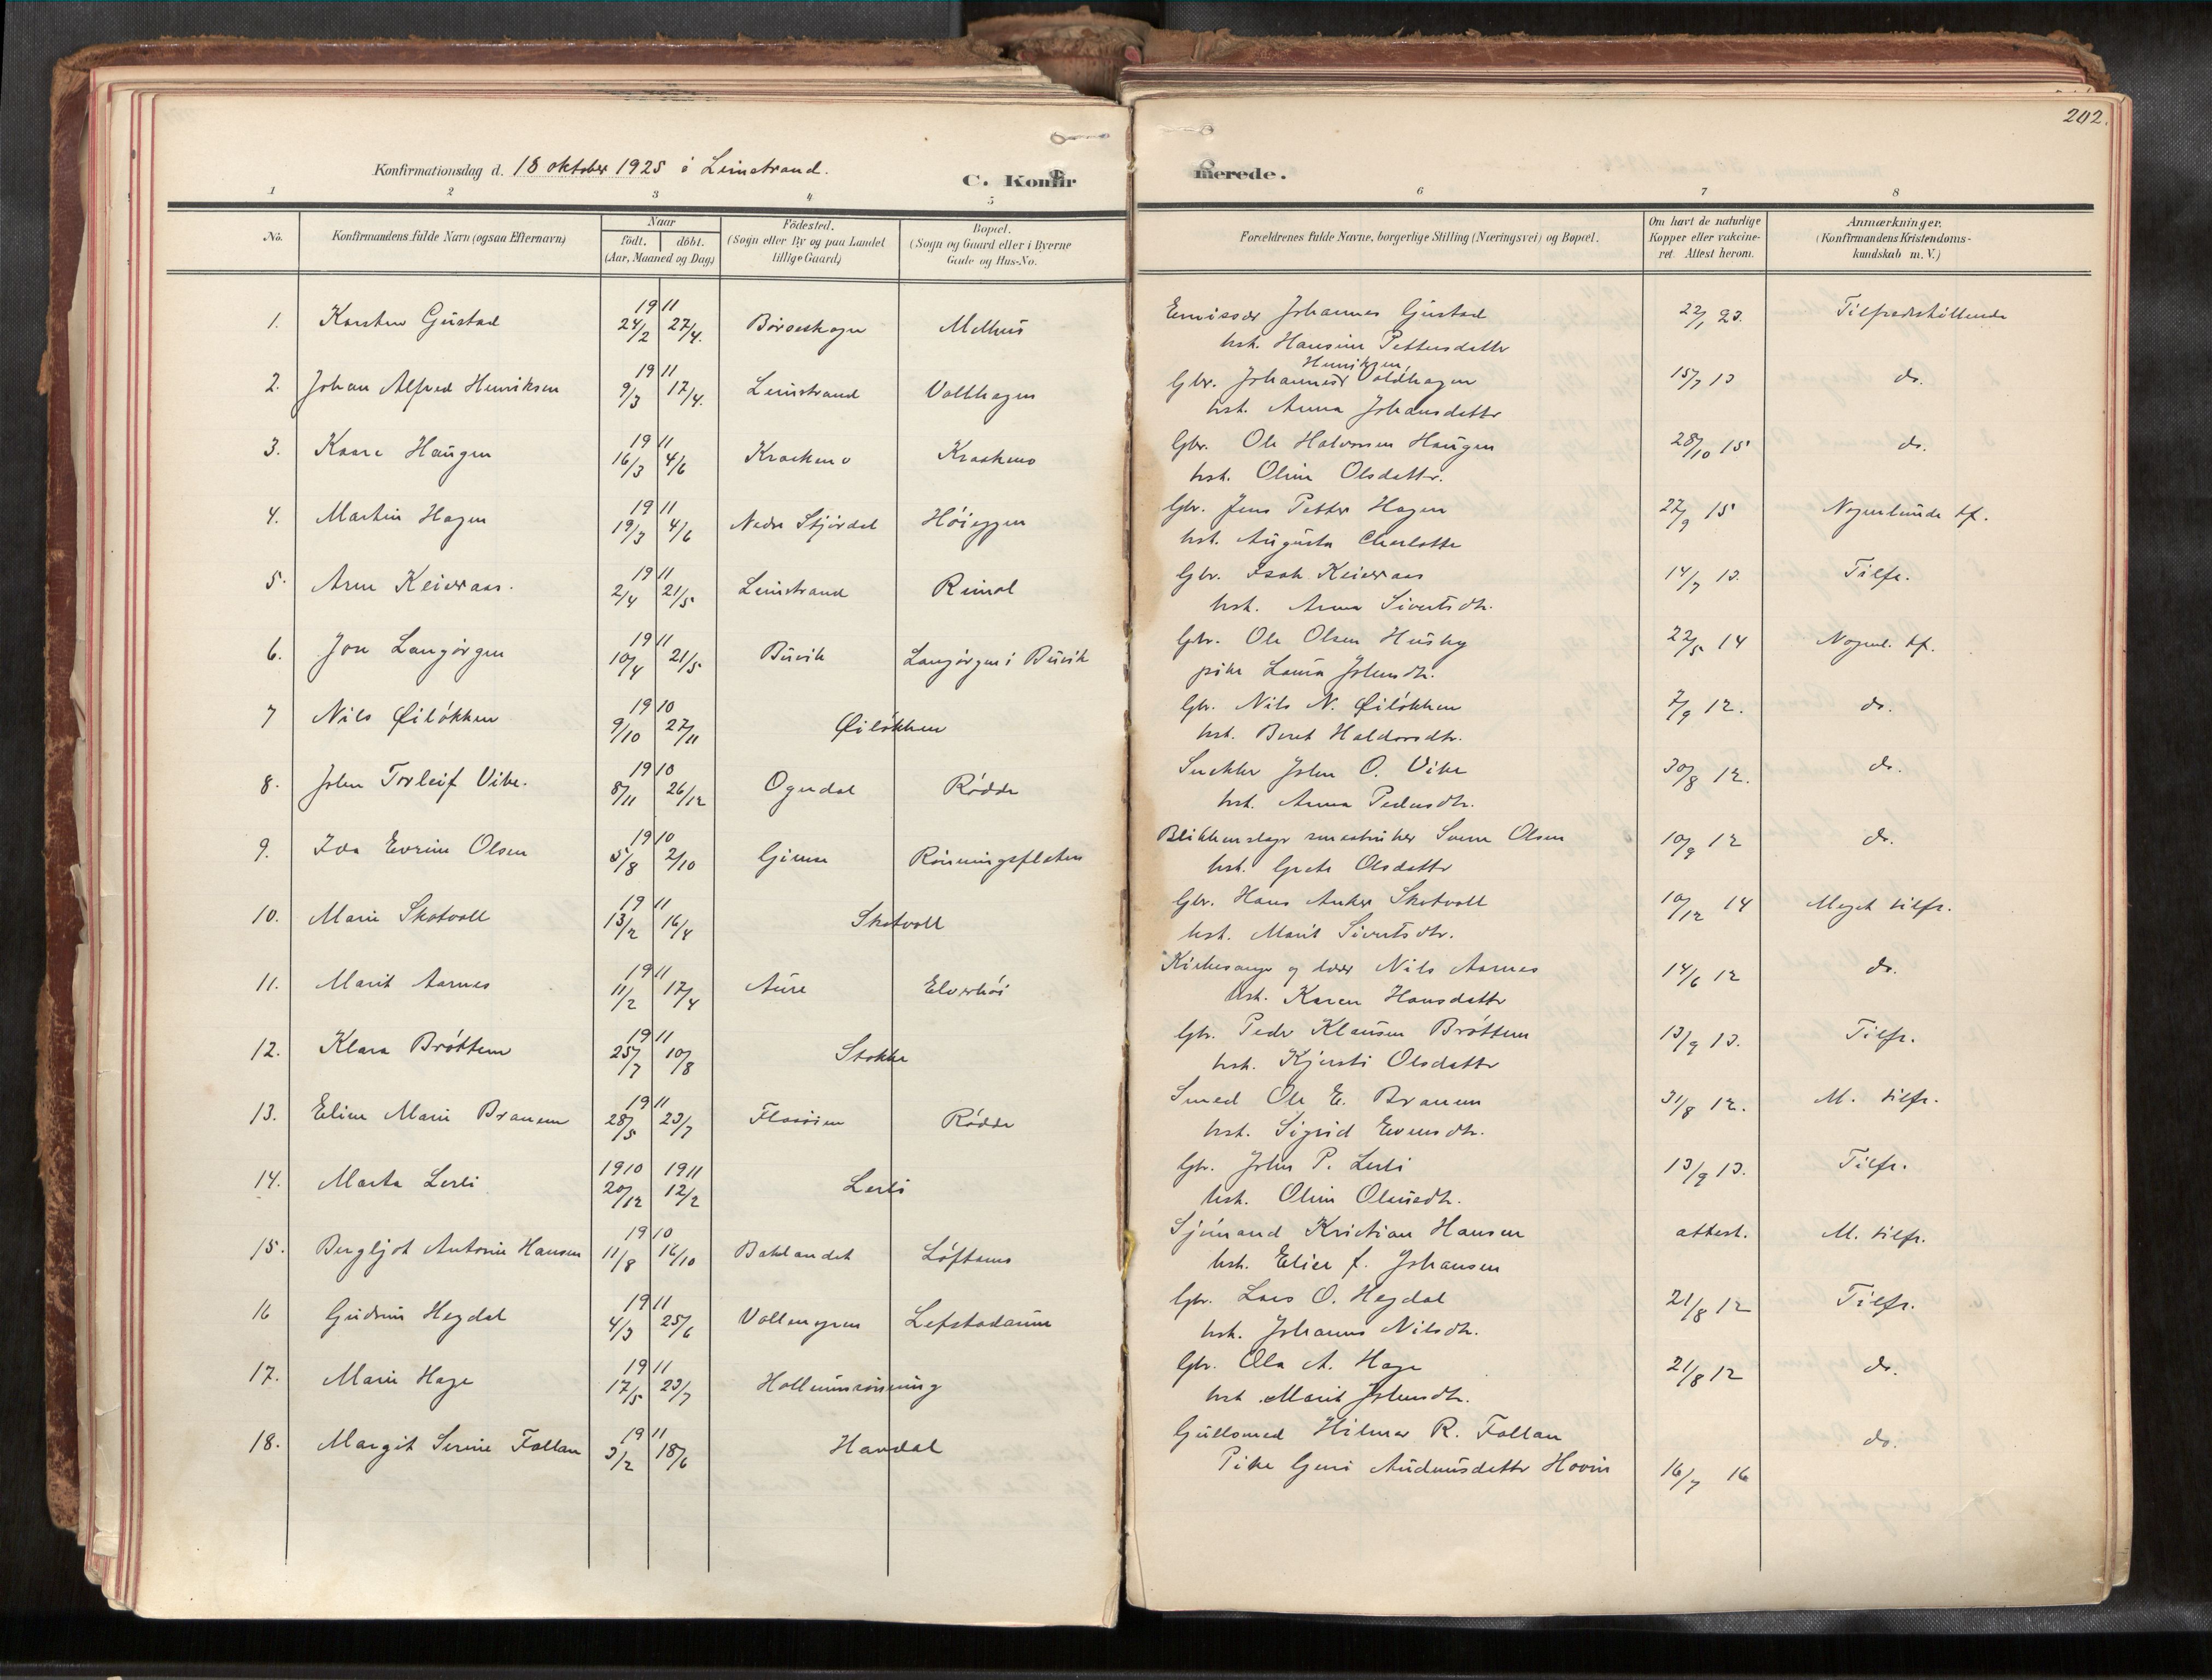 202.
Konfirmationsdag d. 18 oktober 1925 i Leinstrand.
C. Konfirmerede.
1 2 3 4 5 6 7 8
No.
Konfirmandens fulde Navn (ogsaa Efternavn)
Naar
født. døbt.
(Aar, Maaned og Dag)
Födested.
(Sogn eller By og paa Landet
tillige Gaard)
Bopæl.
(Sogn og Gaard eller i Byerne
Gade og Hus-No.
Forældrenes fulde Navne, borgerlige Stilling (Næringsvei) og Bopæl.
Om havt de naturlige
Kopper eller vakcine-
ret. Attest herom.
Anmærkninger.
(Konfirmandens Kristendoms-
kundskab m. V.)
1. Karsten Gustad 1911 24/2 27/4. Børseskogn Melhus Emissær Johannes Gustad 22/1 23. Tilfredsstillende
hst. Hansine Pettersdatter
Henriksen,
2. Johan Alfred Henriksen 1911 9/3 17/4. Leinstrand Valhagen Gbr. Johannes Voldhagen 15/7 13 do.
hst. Anna Johansdatter
3. Kaare Haugen 1911 16/3 4/6 Kraakmo Kraakmo Gbr. Ole Halvorsen Haugen 28/10 15 do.
hst. Oline Olsdatter.
4. Martin Hagen 1911 19/3 4/6 Nedre Stjørdal Høieggen Gbr. Jens Petter Hagen 27/9 15 Nogenlunde tf.
hst. Augusta Charlotte
5. Arne Keiseraas. 1911 2/4 21/5 Leinstrand Reinol Gbr. Isak Keiseraas 14/7 13. Tilfr.
hst. Anna Sivertsdtr.
6. Jon Langørgen 1911 10/4 21/5 Buvik Langørgen i Buvik Gbr. Ole Olsen Husby 22/5 14 Nogenl. tf.
pike Laura Johnsdtr.
7 Nils Øiløkken 1910 9/10 27/11 Øiløkken Gbr. Nils N. Øiløkken 7/9 12. do.
hst. Beret Haldorsdtr.
8. John Torleif Vike. 1910 8/11 26/12 Ogndal Rødde Snekker John O. Vike 30/8 12. do.
hst. Anna Pedersdtr.
9. Ida Evrine Olsen 1910 5/8 2/10 Gimse Rønningsfletten Blikkenslager smaabruker Svenn Olsen 10/9 12 do.
hst. Grete Olsdatter
10. Marie Skotvoll 1911 13/2 16/4 Skotvoll Gbr. Hans Anker Skotvoll 10/12 14 Meget tilfr.
hst. Marit Sivertsdtr.
11. Marit Aarnes 1911 11/2 17/4 Aure Elverhøi Kirkesanger og lærer Nils Aarnes 14/6 12 do.
hst. Karen Hansdatter
12. Klara Brøttem 1911 25/7 10/8 Stokke Gbr. Peder Klausen Brøttem 13/9 13. Tilfr.
hst. Kjersti Olsdatter
13. Eline Marie Branem 1911 28/5 23/7 Flaaøien Rødde Smed Ole E. Branem 31/8 12. M. tilfr.
hst. Sigrid Evensdtr.
14. Marta Lerli 1910 20/12 1911 12/2 Lerli Gbr. John P. Lerli 13/9 13. Tilfr.
hst. Oline Olausdtr.
15. Bergljot Antonie Hansen 1910 11/8 16/10 Baklandet Løftamo Sjømand Kristian Hansen attest. M. tilfr.
hst. Elise f. Johansen
16 Gudrun Hegdal 1911 4/3 25/6 Vollmyren Lefstadaune Gbr. Lars O. Hegdal 21/8 12 Tilfr.
hst. Johanna Nilsdtr.
17. Marie Hage 1911 17/5 23/7 Hollumsrønning Gbr. Ola A. Hage 21/8 12 do.
hst. Marit Johnsdtr.
18. Margit Serine Follan 1911 3/2 18/6 Handal Gullsmed Hilmar R. Follan do.
Pike Guri Audunsdatter Hovin 16/7 16